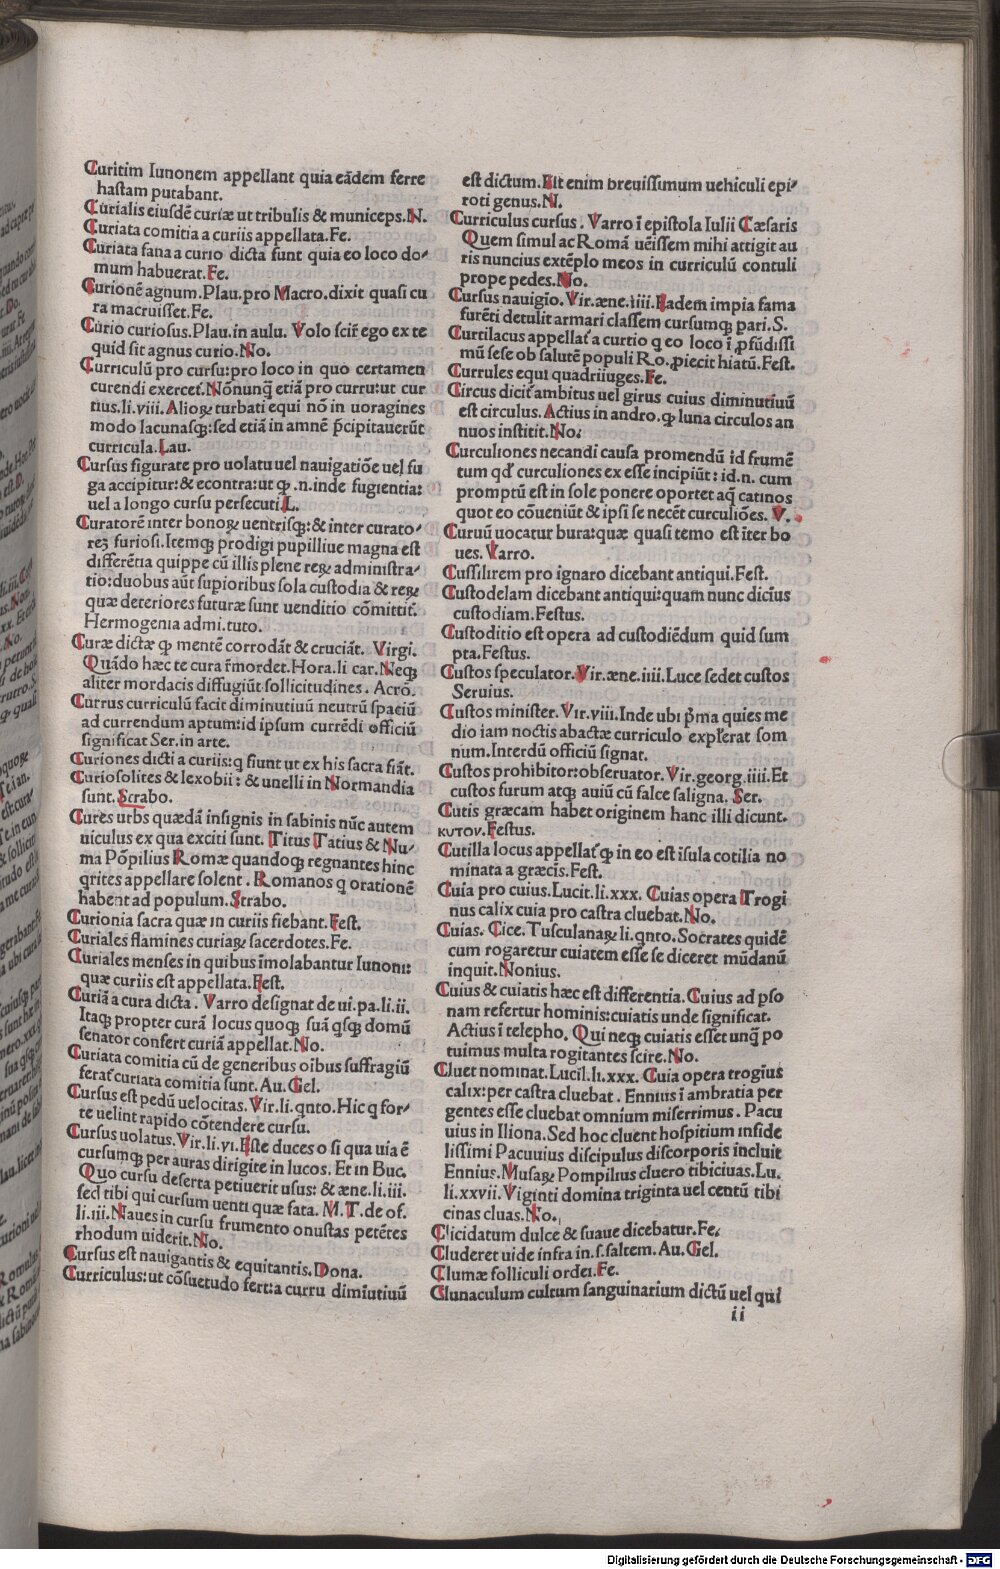 Curitim Iunonem appellant quia eādem ferre
hastam putabant.
Curialis eiusdē curiæ ut tribulis & municeps.N.
Curiata comitia a curiis appellata.Fe.
Curiata fana a curio dicta sunt quia eo loco do-
mum habuerat.Fe.
Curionē agnum.Plau.pro Macro.dixit quasi cu
ra macruisset.Fe.
Curio curiosus.Plau.in aulu. Volo scir̄ ego ex te
quid sit agnus curio.No.
Curriculū pro cursu:pro loco in quo certamen
currendi exercet̄.Nōnunq̄ etiā pro curru:ut cur
tius.li.viii.Alioꝝ turbati equi nō in uoragines
modo lacunasqꝫ:sed etiā in amnē p̄cipitauerūt
curricula.Lau.
Cursus figurate pro uolatu uel nauigatiōe uel fu
ga accipitur:& econtra:ut ꝙ.n.inde fugientia:
uel a longo cursu persecuti.L.
Curatorē inter bonoꝝ uentrisqꝫ:& inter curato-
reꝫ furiosi.Itemqꝫ prodigi pupilliue magna est
differētia quippe cū illis plene reꝝ administra-
tio:duobus aūt supioribus sola custodia & reꝝ
quæ deteriores futuræ sunt uenditio cōmittit̄.
Hermogenia admi.tuto.
Curæ dictæ ꝙ mentē corrodāt & cruciāt. Virgi.
Quādo hæc te cura r̄mordet.Hora.li car.Neqꝫ
aliter mordacis diffugiūt sollicitudines . Acrō.
Currus curriculū facit diminutiuū neutrū spaciū
ad currendum aptum:id ipsum currēdi officiū
significat Ser.in arte.
Curiones dicti a curiis:q fiunt ut ex his sacra fiāt.
Curiosolites & lexobii : & unelli in Normandia
sunt.Strabo.
Cures urbs quædā insignis in sabinis nūc autem
uiculus ex qua exciti sunt. Titus Tatius & Nu-
ma Pōpilius Romæ quandoqꝫ regnantes hinc
qrites appellare solent . Romanos q orationē
habent ad populum.Strabo.
Curionia sacra quæ in curiis fiebant.Fest.
Curiales flamines curiaꝝ sacerdotes.Fe.
Curiales menses in quibus īmolabantur Iunoni:
quæ curiis est appellata.Fest.
Curiā a cura dicta . Varro designat de ui.pa.li.ii.
Itaqꝫ propter curā locus quoqꝫ suā qsqꝫ domū
senator confert curiā appellat.No.
Curiata comitia cū de generibus oibus suffragiū
ferat̄ curiata comitia sunt. Au.Gel.
Cursus est pedū uelocitas.Vir.li.qnto.Hic q for-
te uelint rapido cōtendere cursu.
Cursus uolatus.Vir.li.vi.Este duces o si qua uia ē
cursumqꝫ per auras dirigite in lucos. Et in Buc.
Quo cursu deserta petiuerit usus: & æne.li.iii.
sed tibi qui cursum uenti quæ fata. M.T.de of.
li.iii.Naues in cursu frumento onustas petētes
rhodum uiderit.No.
Cursus est nauigantis & equitantis.Dona.
Curriculus:ut cōsuetudo fert:a curru dimiutiuū
est dictum.Est enim breuissimum uehiculi epi-
roti genus.N.
Curriculus cursus . Varro ī epistola Iulii Cæsaris
Quem simul ac Romā uēissem mihi attigit au
ris nuncius extēplo meos in curriculū contuli
prope pedes.No.
Cursus nauigīo. Vir.æne.iiii.Eadem impia fama
furēti detulit armari classem cursumqꝫ pari.S.
Curtilacus appellat̄ a curtio q eo loco ī ꝓfūdissi
mū sese ob salutē populi Ro.ꝓiecit hiatū.Fest.
Currules equi quadriiuges.Fe.
Circus dicit̄ ambitus uel girus cuius diminutiuū
est circulus. Actius in andro.ꝙ luna circulos an
nuos institit.No.
Curculiones necandi causa promendū id frumē
tum qđ curculiones ex esse incipiūt: id.n. cum
promptū est in sole ponere oportet aq̄ catinos
quot eo cōueniūt & ipsi se necēt curculiōes. V.
Curuū uocatur bura:quæ quasi temo est iter bo
ues. Varro.
Cussilirem pro ignaro dicebant antiqui.Fest.
Custodelam dicebant antiqui:quam nunc dicius
custodiam.Festus.
Custoditio est opera ad custodiēdum quid sum
pta.Festus.
Custos speculator.Vir.æne.iiii.Luce sedet custos
Seruius.
Custos minister.Vir.viii.Inde ubi p̄ma quies me
dio iam noctis abactæ curriculo expl̄erat som
num.Interdū officiū signat.
Custos prohibitor:obseruator. Vir.georg.iiii.Et
custos furum atqꝫ auiū cū falce saligna. Ser.
Cutis græcam habet originem hanc illi dicunt.
κυτον.Festus.
Cutilla locus appellat̄ ꝙ in eo est isula cotilia no
minata a græcis.Fest.
Cuia pro cuius.Lucil.li.xxx. Cuias opera Trogi
nus calix cuia pro castra cluebat.No.
Cuias. Cice.Tusculanaꝝ li.qnto.Socrates quidē
cum rogaretur cuiatem esse se diceret mūdanū
inquit.Nonius.
Cuius & cuiatis hæc est differentia.Cuius ad pso
nam refertur hominis:cuiatis unde significat.
Actius ī telepho. Qui neqꝫ cuiatis esset unq̄ po
tuimus multa rogitantes scire.No.
Cluet nominat. Lucil.li.xxx. Cuia opera trogius
calix:per castra cluebat . Ennius ī ambratia per
gentes esse cluebat omnium miserrimus . Pacu
uius in Iliona.Sed hoc cluent hospitium infide
lissimi Pacuuius discipulus discorporis incluit
Ennius.Musaꝝ Pompilius cluero tibiciuas.Lu.
li.xxvii.Viginti domina triginta uel centū tibi
cinas cluas.No.
Clicidatum dulce & suaue dicebatur.Fe.
Cluderet uide infra in.s.saltem.Au.Gel.
Clumæ folliculi ordei.Fe.
Clunaculum cultrum sanguinarium dictū uel qui
ii
Digitalisierung gefördert durch die Deutsche Forschungsgemeinschaft - DFG